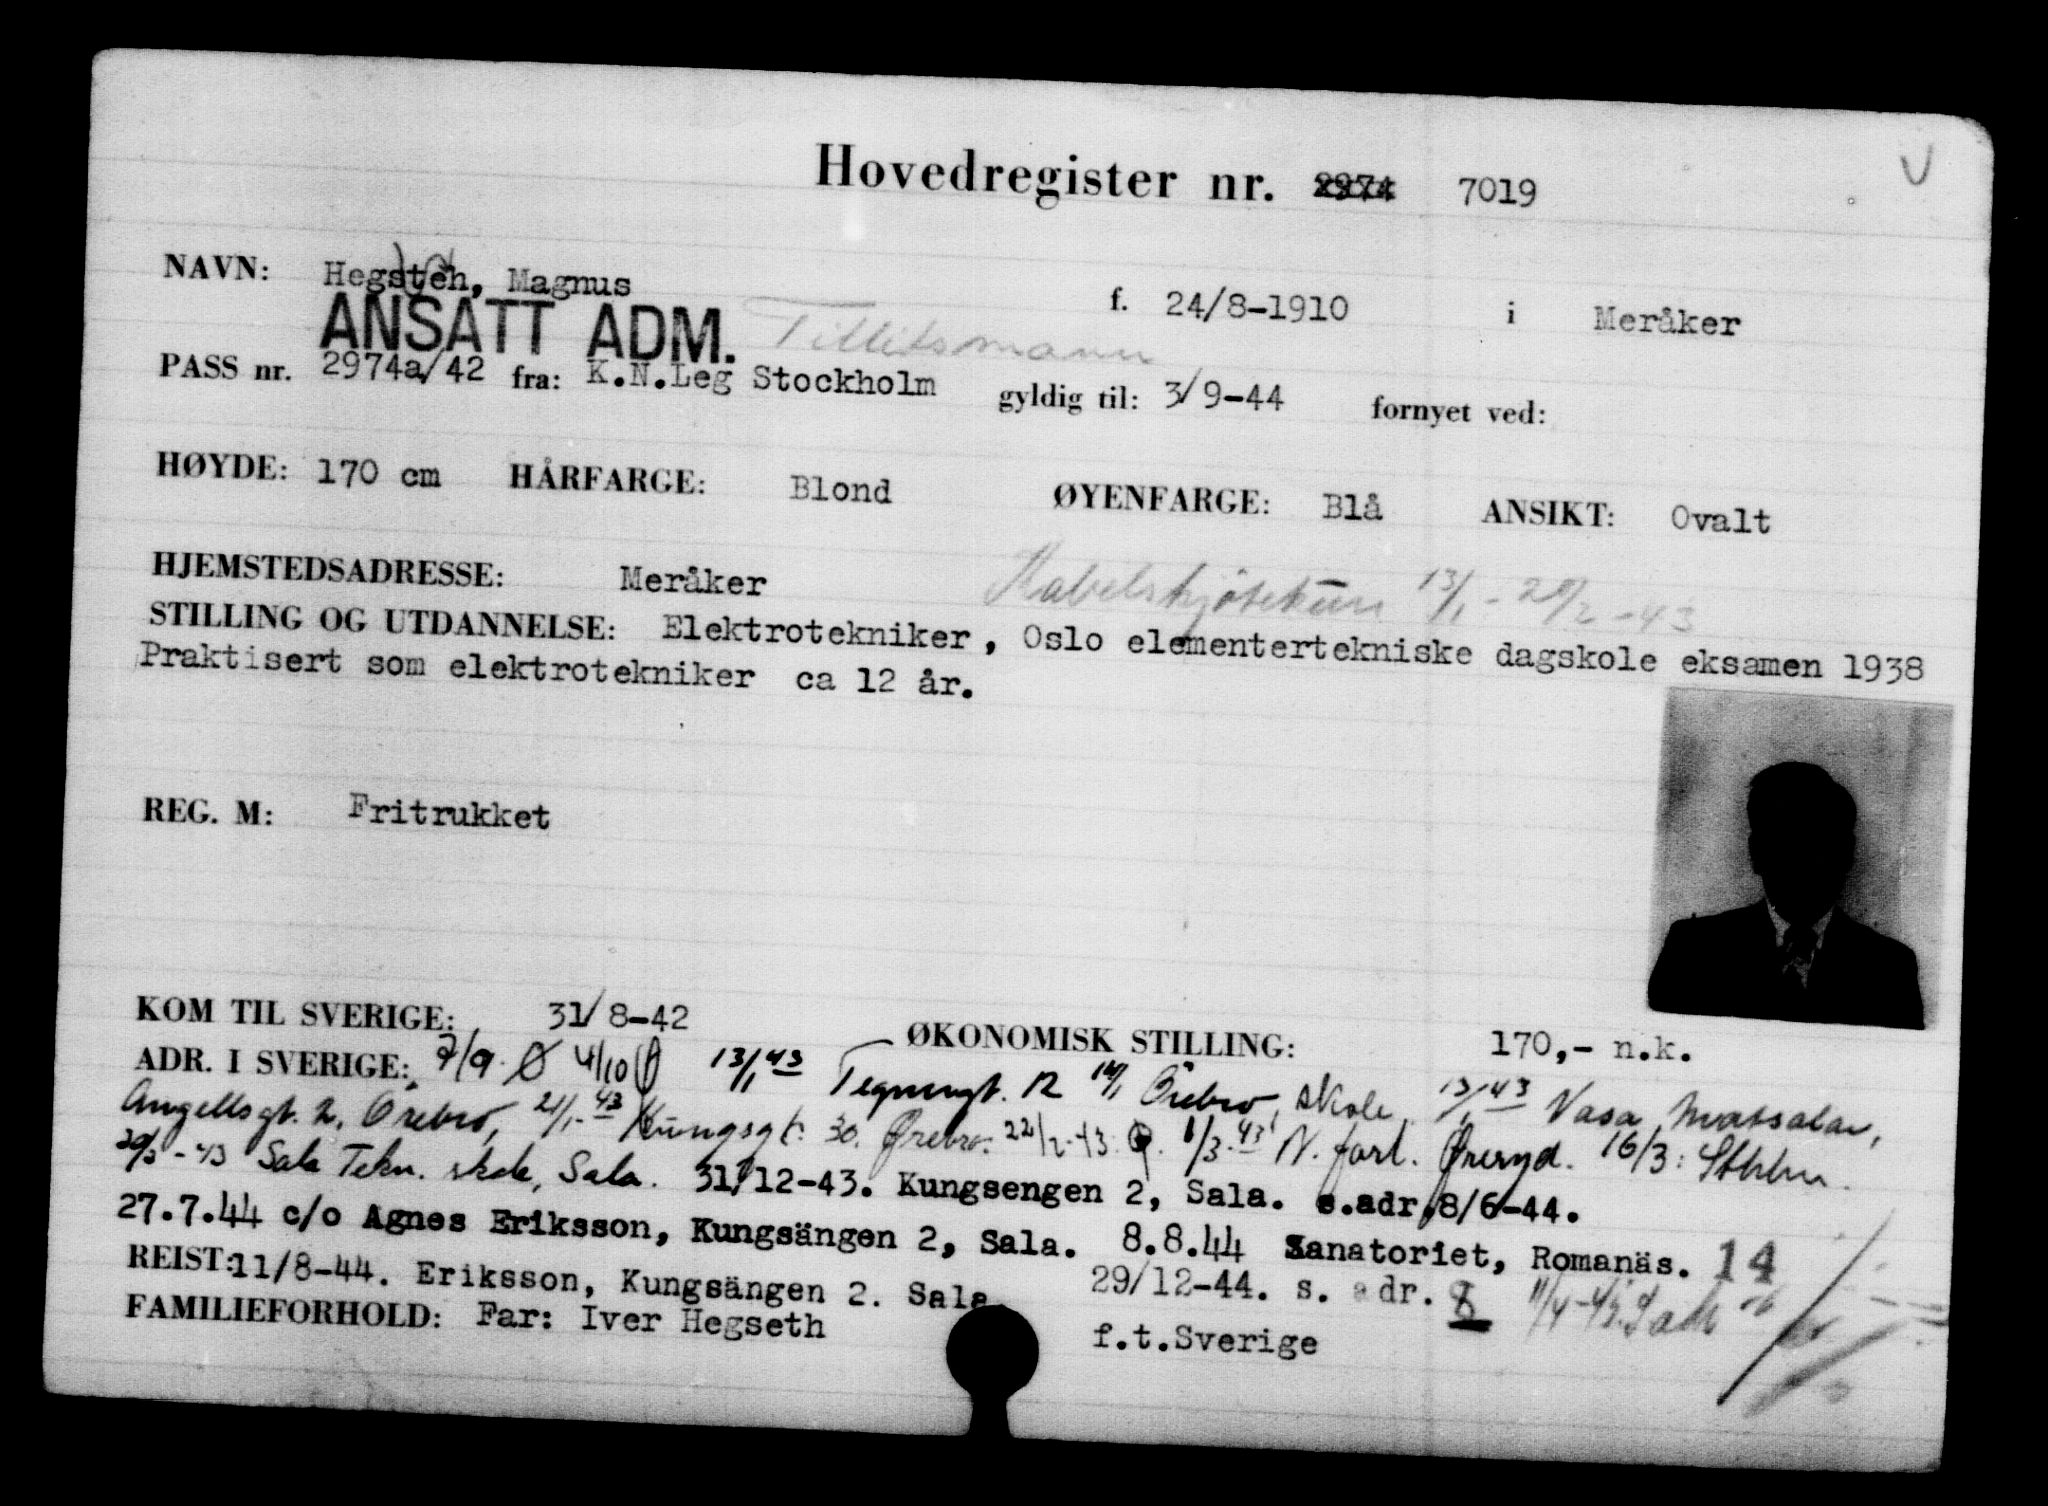 Hovedregister nr. 2974 7019
NAVN: Hegsteh, Magnus f. 24/8-1910 i Meråker
ANSATT ADM. Tillitsmann
PASS nr. 2974a/42 fra: K.N.Leg Stockholm gyldig til: 3/9-44 fornyet ved:
HØYDE: 170 cm HÅRFARGE: Blond ØYENFARGE: Blå ANSIKT: Ovalt
HJEMSTEDSADRESSE: Meråker 13/1 - 20/2 - 43
STILLING OG UTDANNELSE: Elektrotekniker, Oslo elementertekniske dagskole eksamen 1938
Praktisert som elektrotekniker ca 12 år.
REG. M: Fritrukket
KOM TIL SVERIGE: 31/8-42 ØKONOMISK STILLING: 170,- n.k.
ADR. I SVERIGE: 7/9 Ø 4/10 Ø 13/1 43 Tegnergt. 12 Örebro, skole. 13/1 43 Vasa Matsalar,
Angellsgt. 2, Örebro, 21/1-43 Kungsgt. 30. Ørebro. 22/2-43. 1/3-43 N. forl. Øreryd. 16/3: Sthlm.
20/3-43 Sala Tekn. skole, Sala. 31/12-43. Kungsengen 2, Sala. s.adr. 8/6-44.
27.7.44 c/o Agnes Eriksson, Kungsängen 2, Sala. 8.8.44 Sanatoriet, Romanäs. 14
REIST: 11/8-44. Eriksson, Kungsängen 2. Sala 29/12-44. s. adr. 8 11/4-45
FAMILIEFORHOLD: Far: Iver Hegseth f.t.Sverige